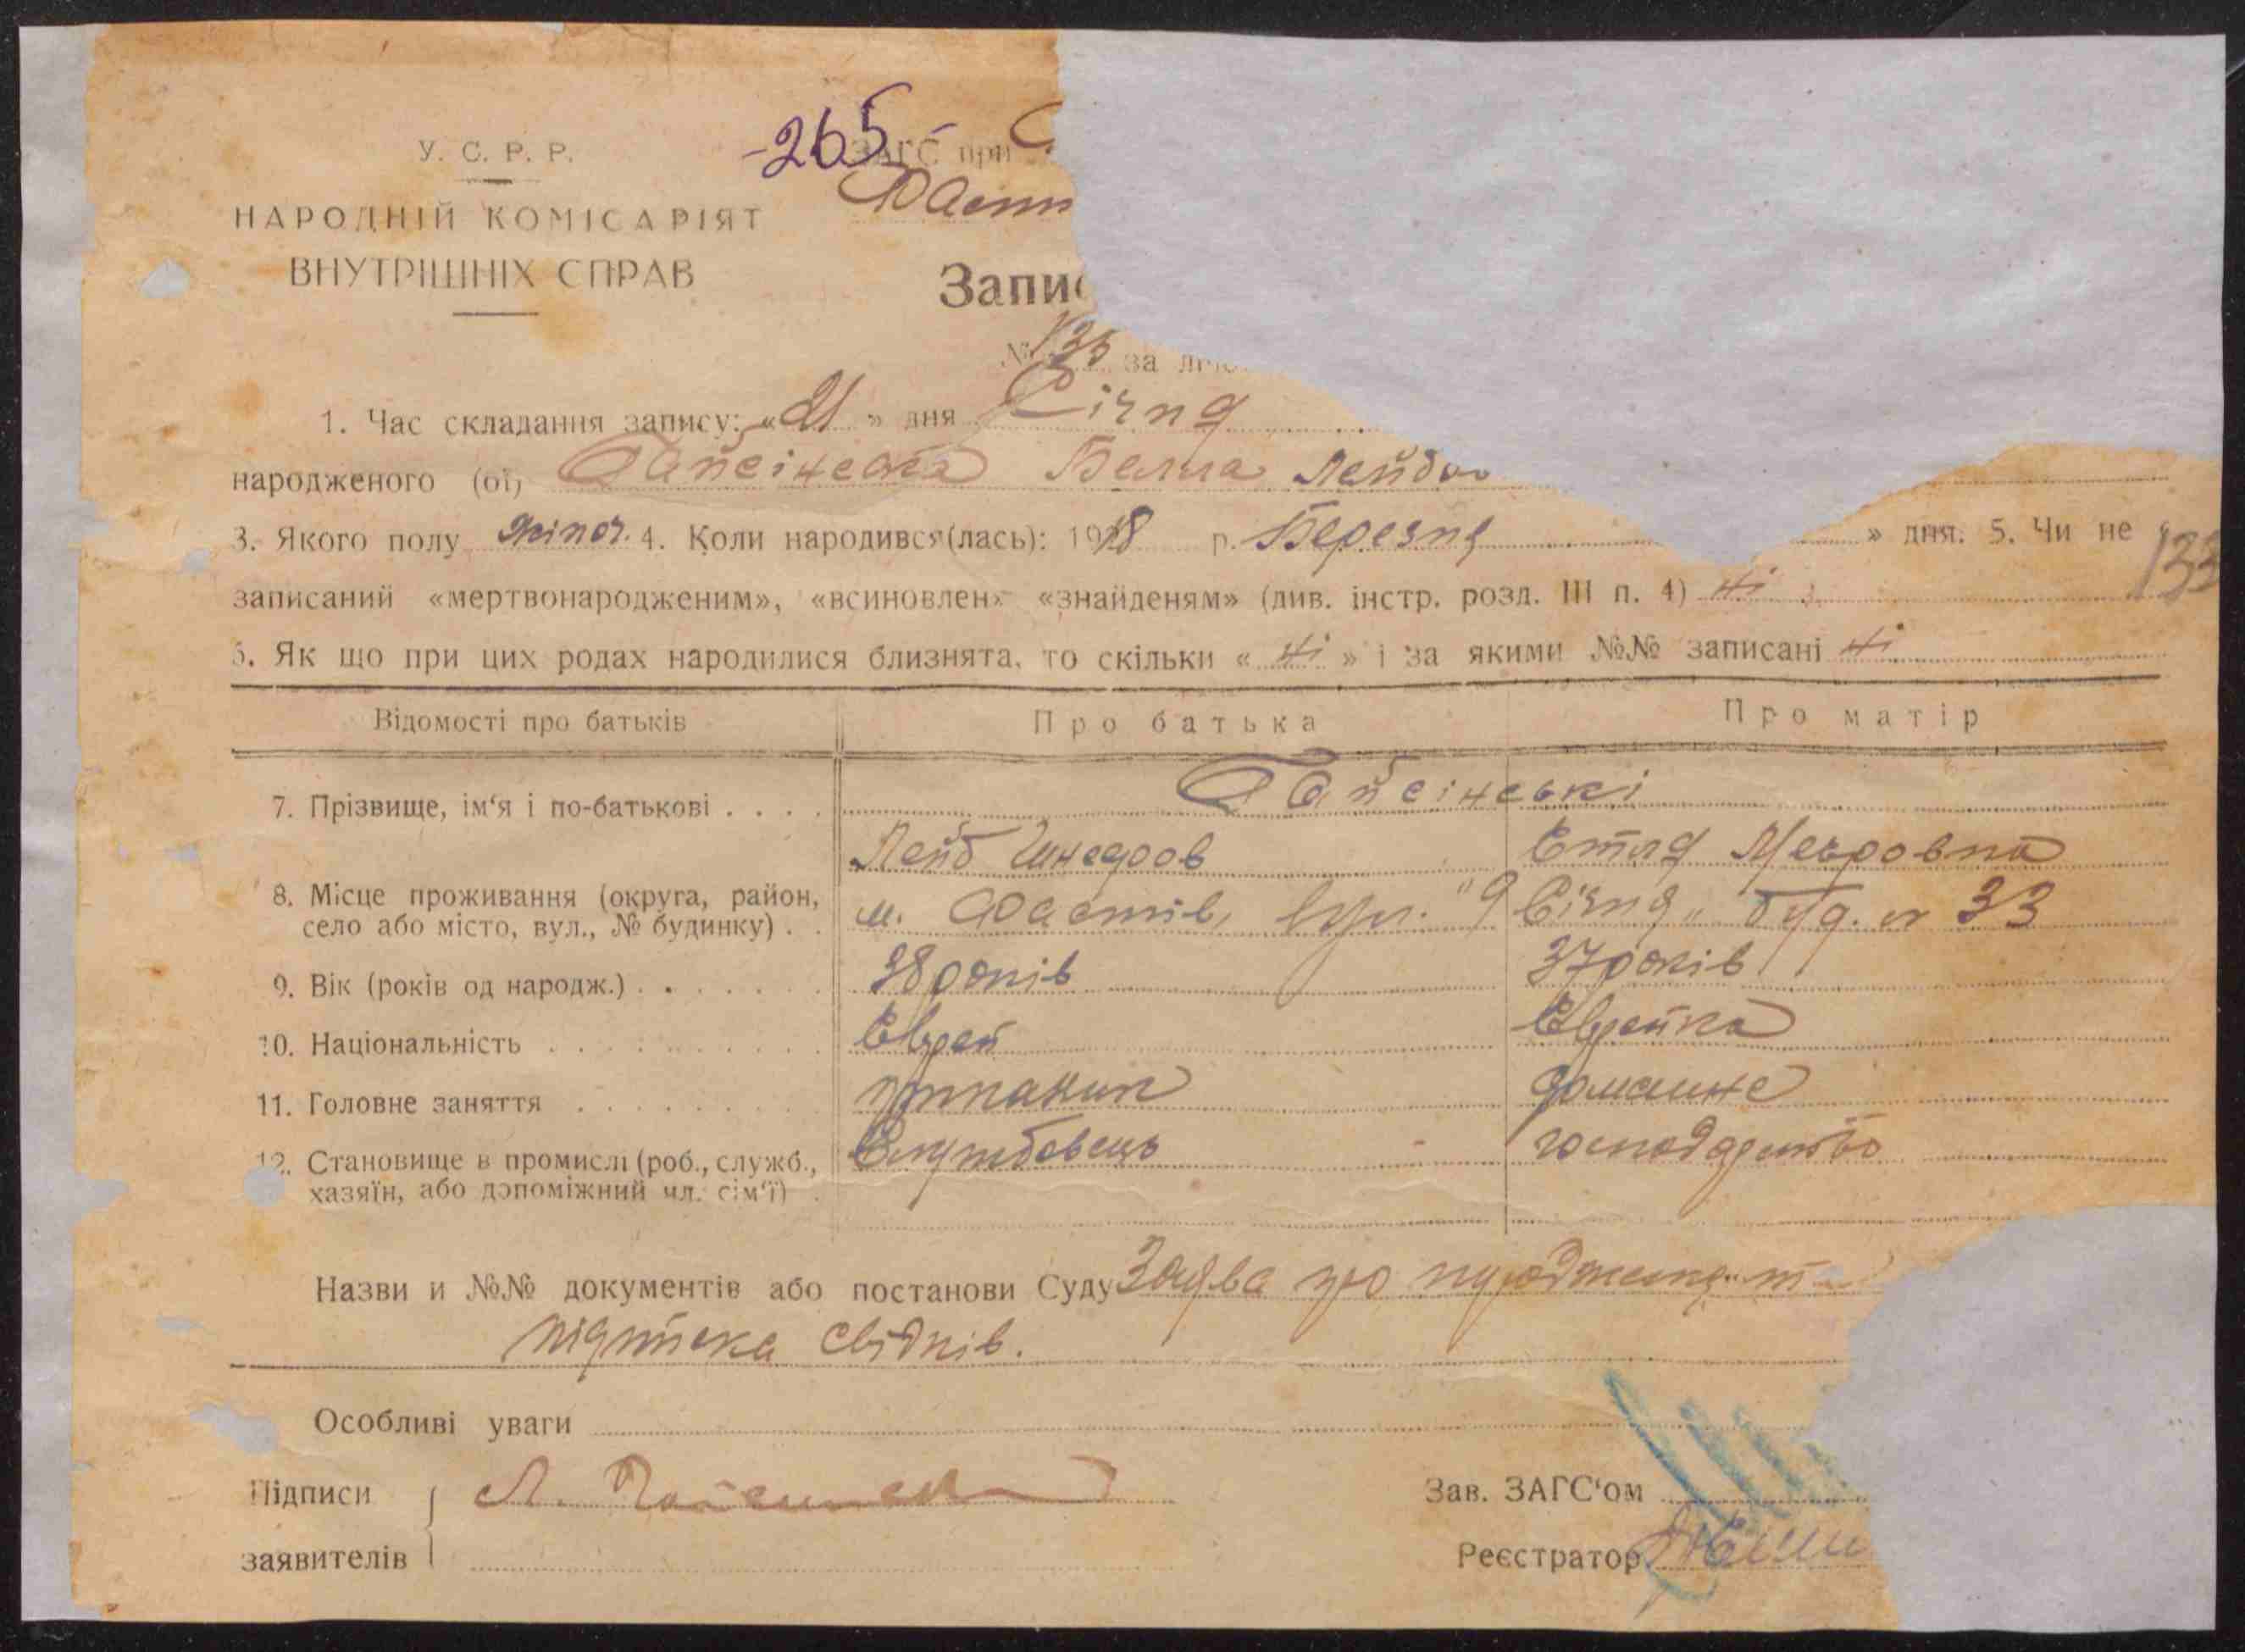 У. С. Р. Р.
НАРОДНІЙ КОМІСАРІЯТ
ВНУТРІШНІХ СПРАВ
-265
ЗАГС при
Фаст
Запис
№ 135 за
1. Час складання запису: «21» дня Січня
народженого (ої) Гайсінська Белла Лейбов
3. Якого полу жіноч. 4. Коли народився(лась): 1918 р. Березня » дня. 5. Чи не
133
записаний «мертвонародженим», «всиновлен» «знайденям» (див. інстр. розд. III п. 4) ні
6. Як що при цих родах народилися близнята, то скільки « ні » і за якими №№ записані ні
Відомості про батьків Про батька Про матір
7. Прізвище, ім'я і по-батькові . . . . Гайсінські
Лейб Етля Меєровна
8. Місце проживання (округа, район,
село або місто, вул., № будинку) . . м. Фастів, вул. "9 Січня" буд. № 33
9. Вік (років од народж.) . . . . . . . 38 років 37 років
10. Національність . . . . . . . . . . Єврей Єврейка
11. Головне заняття . . . . . . . . . домашнє
12. Становище в промислі (роб., служб.,
хазяїн, або допоміжний чл. сім'ї) . Службовець господарство
Назви и №№ документів або постанови Суду Заява про
підписка свідків.
Особливі уваги
Підписи
заявителів
Л. Гайсинский
Зав. ЗАГС'ом
Реєстратор